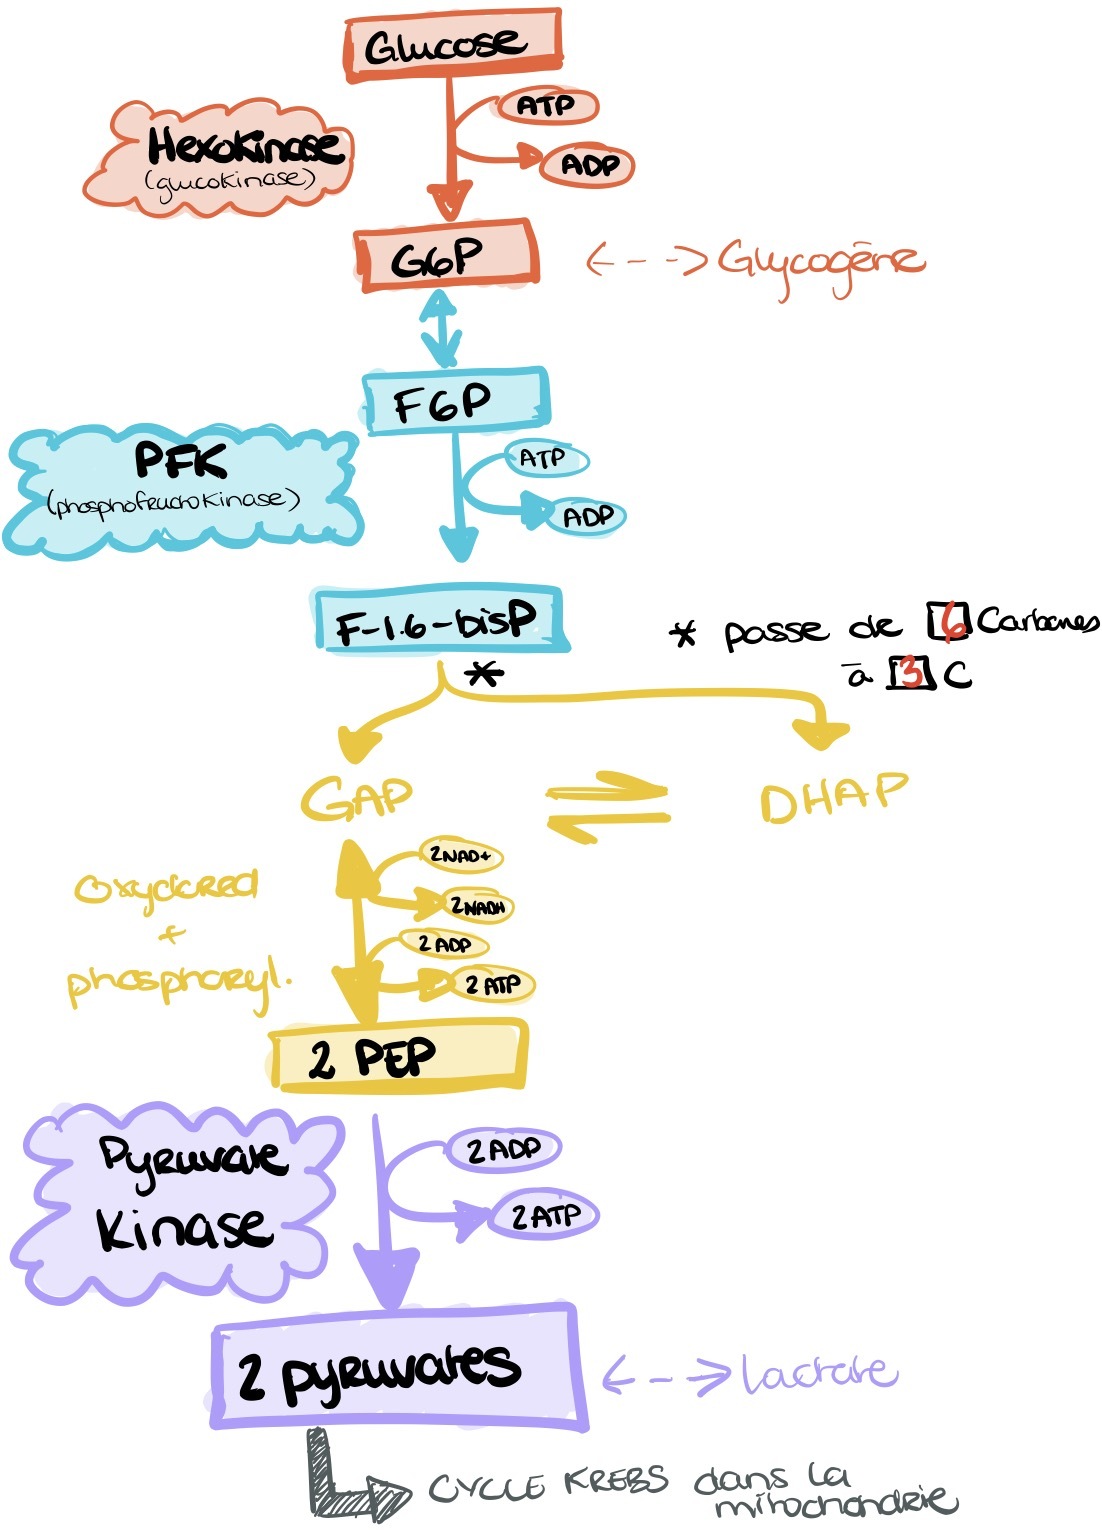 Glucose
ATP
Hexokinase
(glucokinase)
ADP
G6P
Glycogène
F6P
PFK
(phosphofructokinase)
ATP
ADP
F-1.6-bisP
* passe de 6 Carbones
à 3 C
*
GAP
DHAP
2NAD+
Oxydored
+
phosphoryl.
2NADH
2 ADP
2 ATP
2 PEP
Pyruvate
Kinase
2 ADP
2 ATP
2 pyruvates
lactate
CYCLE KREBS dans la
mitochondrie